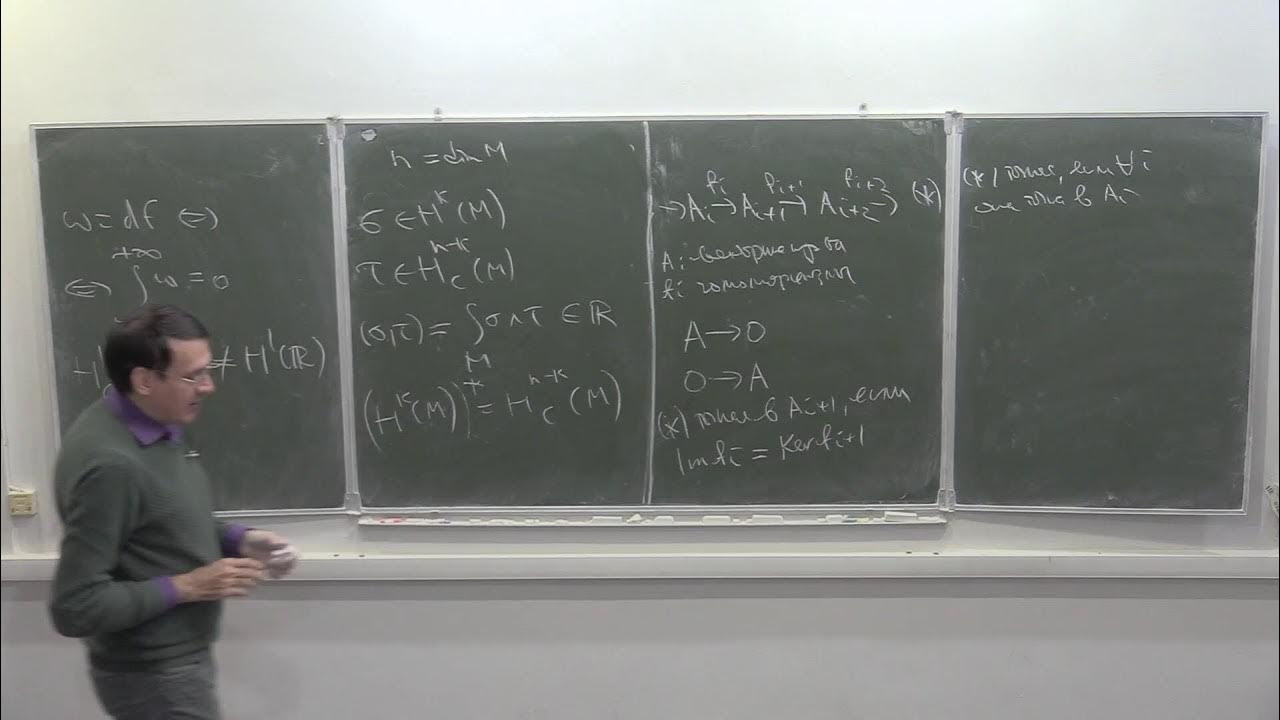 ω = df ⇔
⇔ ∫ ω = 0
+∞
H ≠ H¹(ℝ)
n = dim M
σ ∈ Hᵏ(M)
τ ∈ H_c^{n-k}(M)
(σ,τ) = ∫_M σ∧τ ∈ ℝ
(Hᵏ(M))* = H_c^{n-k}(M)
f_i f_{i+1} f_{i+2}
→ A_i → A_{i+1} → A_{i+2} → (*)
A_i
f_i гомоморфизмы
A → 0
0 → A
(*) точна в A_{i+1}, если
Im f_i = Ker f_{i+1}
(*) точна, если ∀ i
она точна в A_i